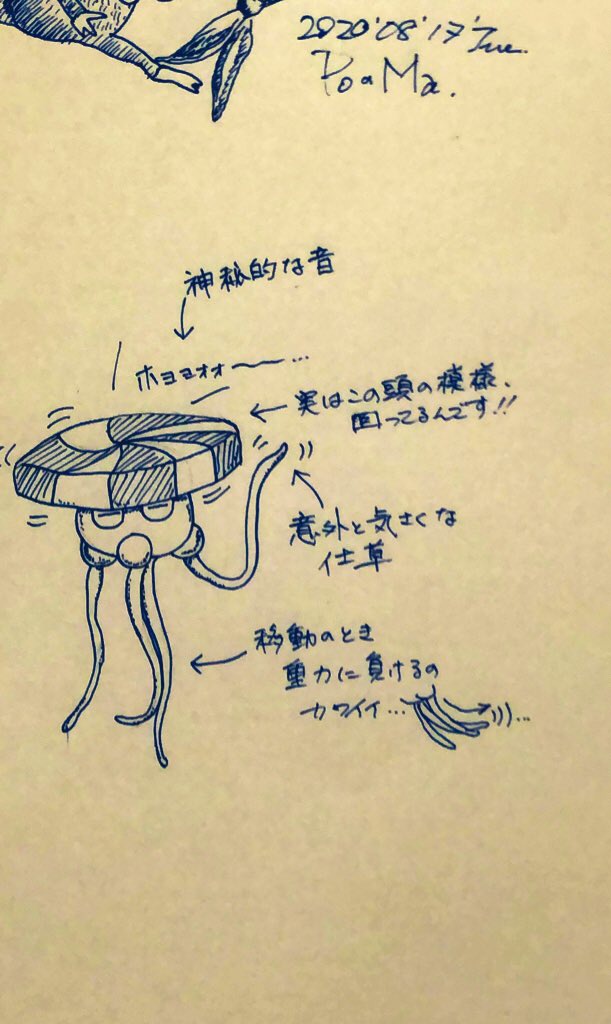 2020'08'17'Tue.
PoaMa.
神秘的な音
ホヨヨォォー〜…
実はこの頭の模様、
回ってるんです!!
意外と気さくな
仕草
移動のとき
重力に負けるの
カワイイ…